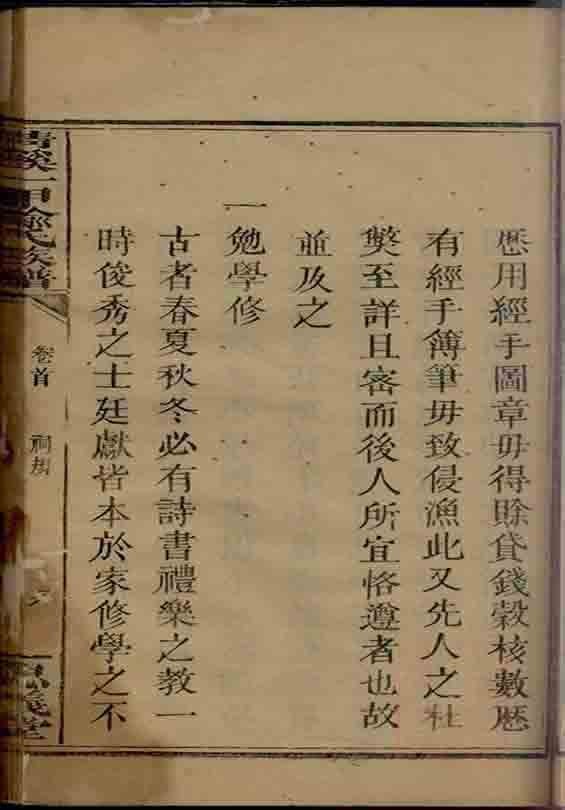 憑用經手圖章毋得賖貸錢穀核數歷
有經手簿筆毋致侵漁此又先人之杜
獘至詳且密而後人所宜恪遵者也故
並及之
一勉學修
古者春夏秋冬必有詩書禮樂之教一
時俊秀之士廷獻皆本於家修學之不
青溪一甲余氏族譜
卷首 祠規